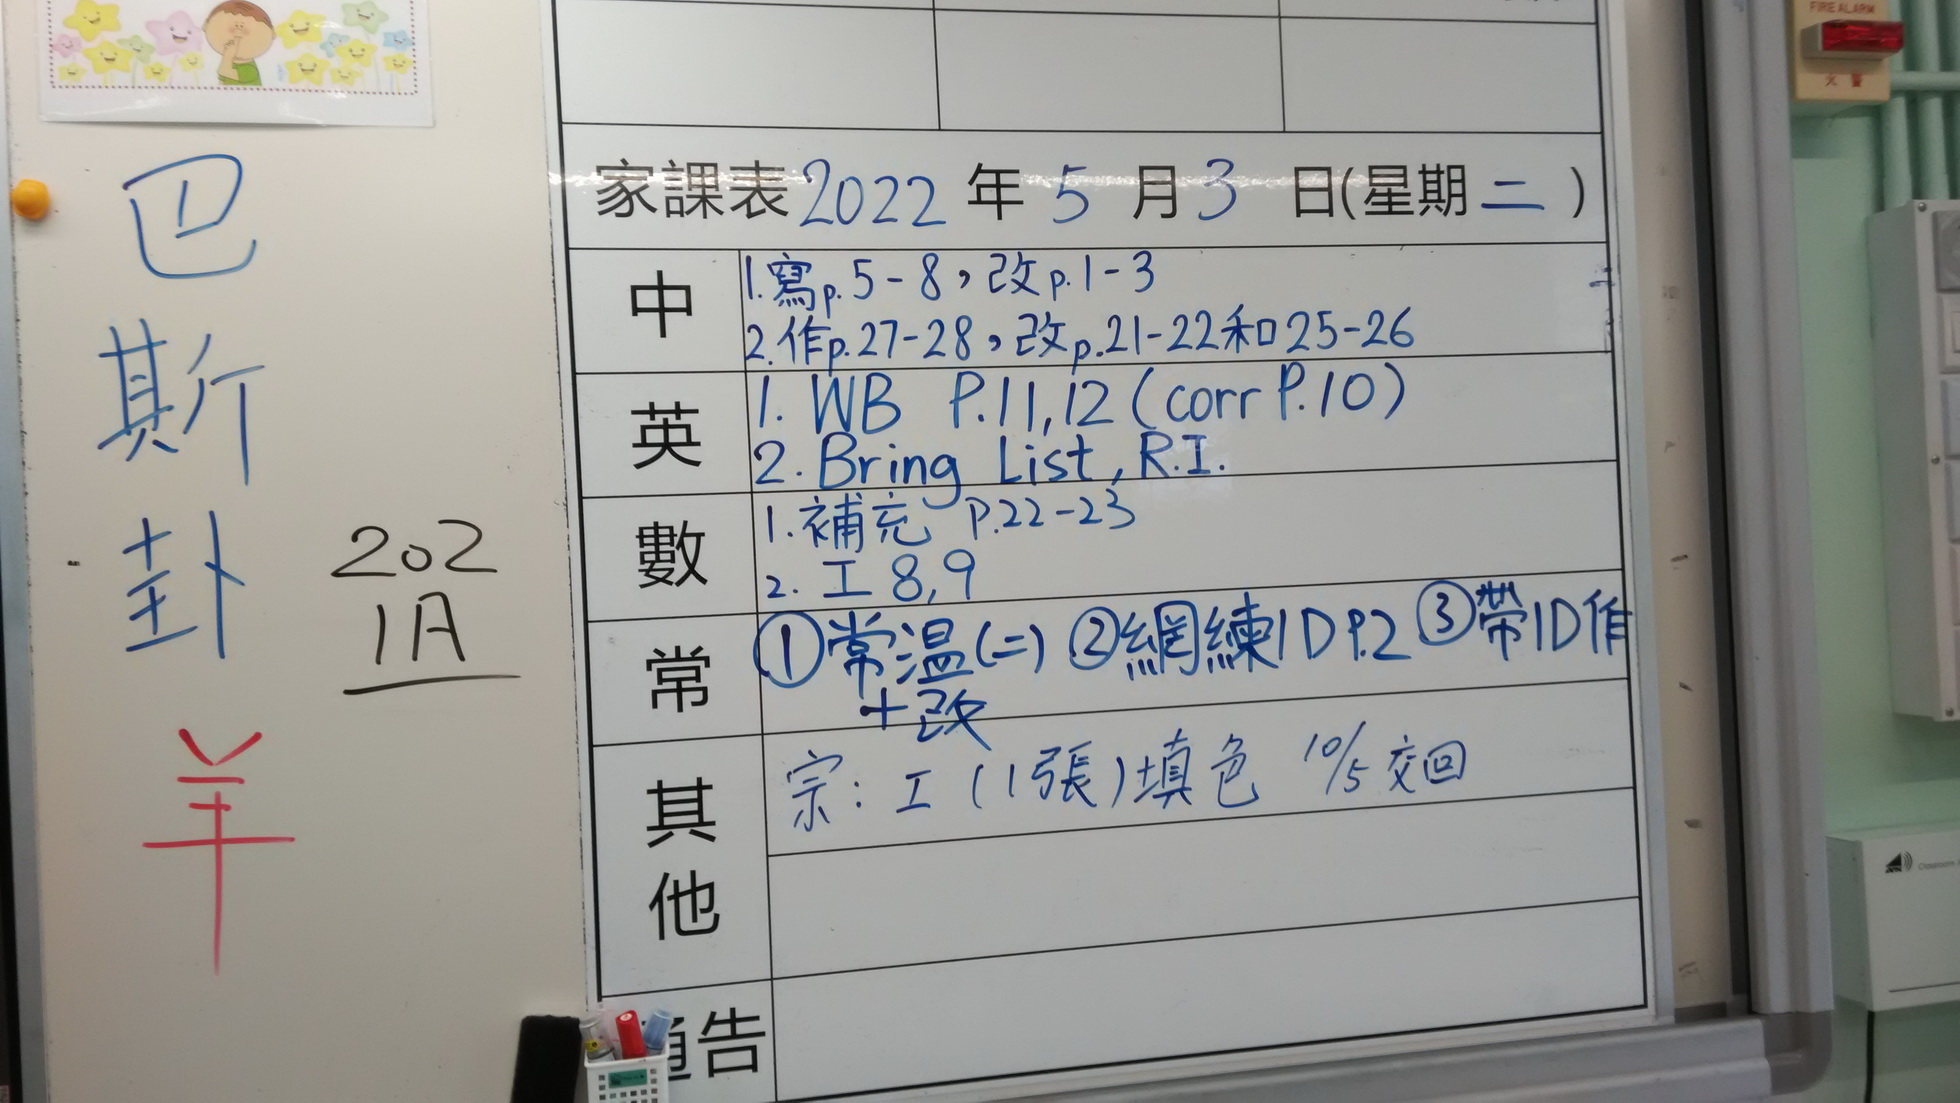 巴
斯
卦
羊
202
1A
家課表2022年5月3日(星期二)
中
1.寫p.5-8，改p.1-3
2.作p.27-28，改p.21-22和25-26
英
1. WB P.11,12 (corr P.10)
2. Bring List, R.I.
數
1.補充 P.22-23
2. 工 8,9
常
①常溫(二) ②網練1D P.2 ③帶1D作
+改
其他
宗: 工 (1張) 填色 10/5 交回
通告
FIRE ALARM
火警